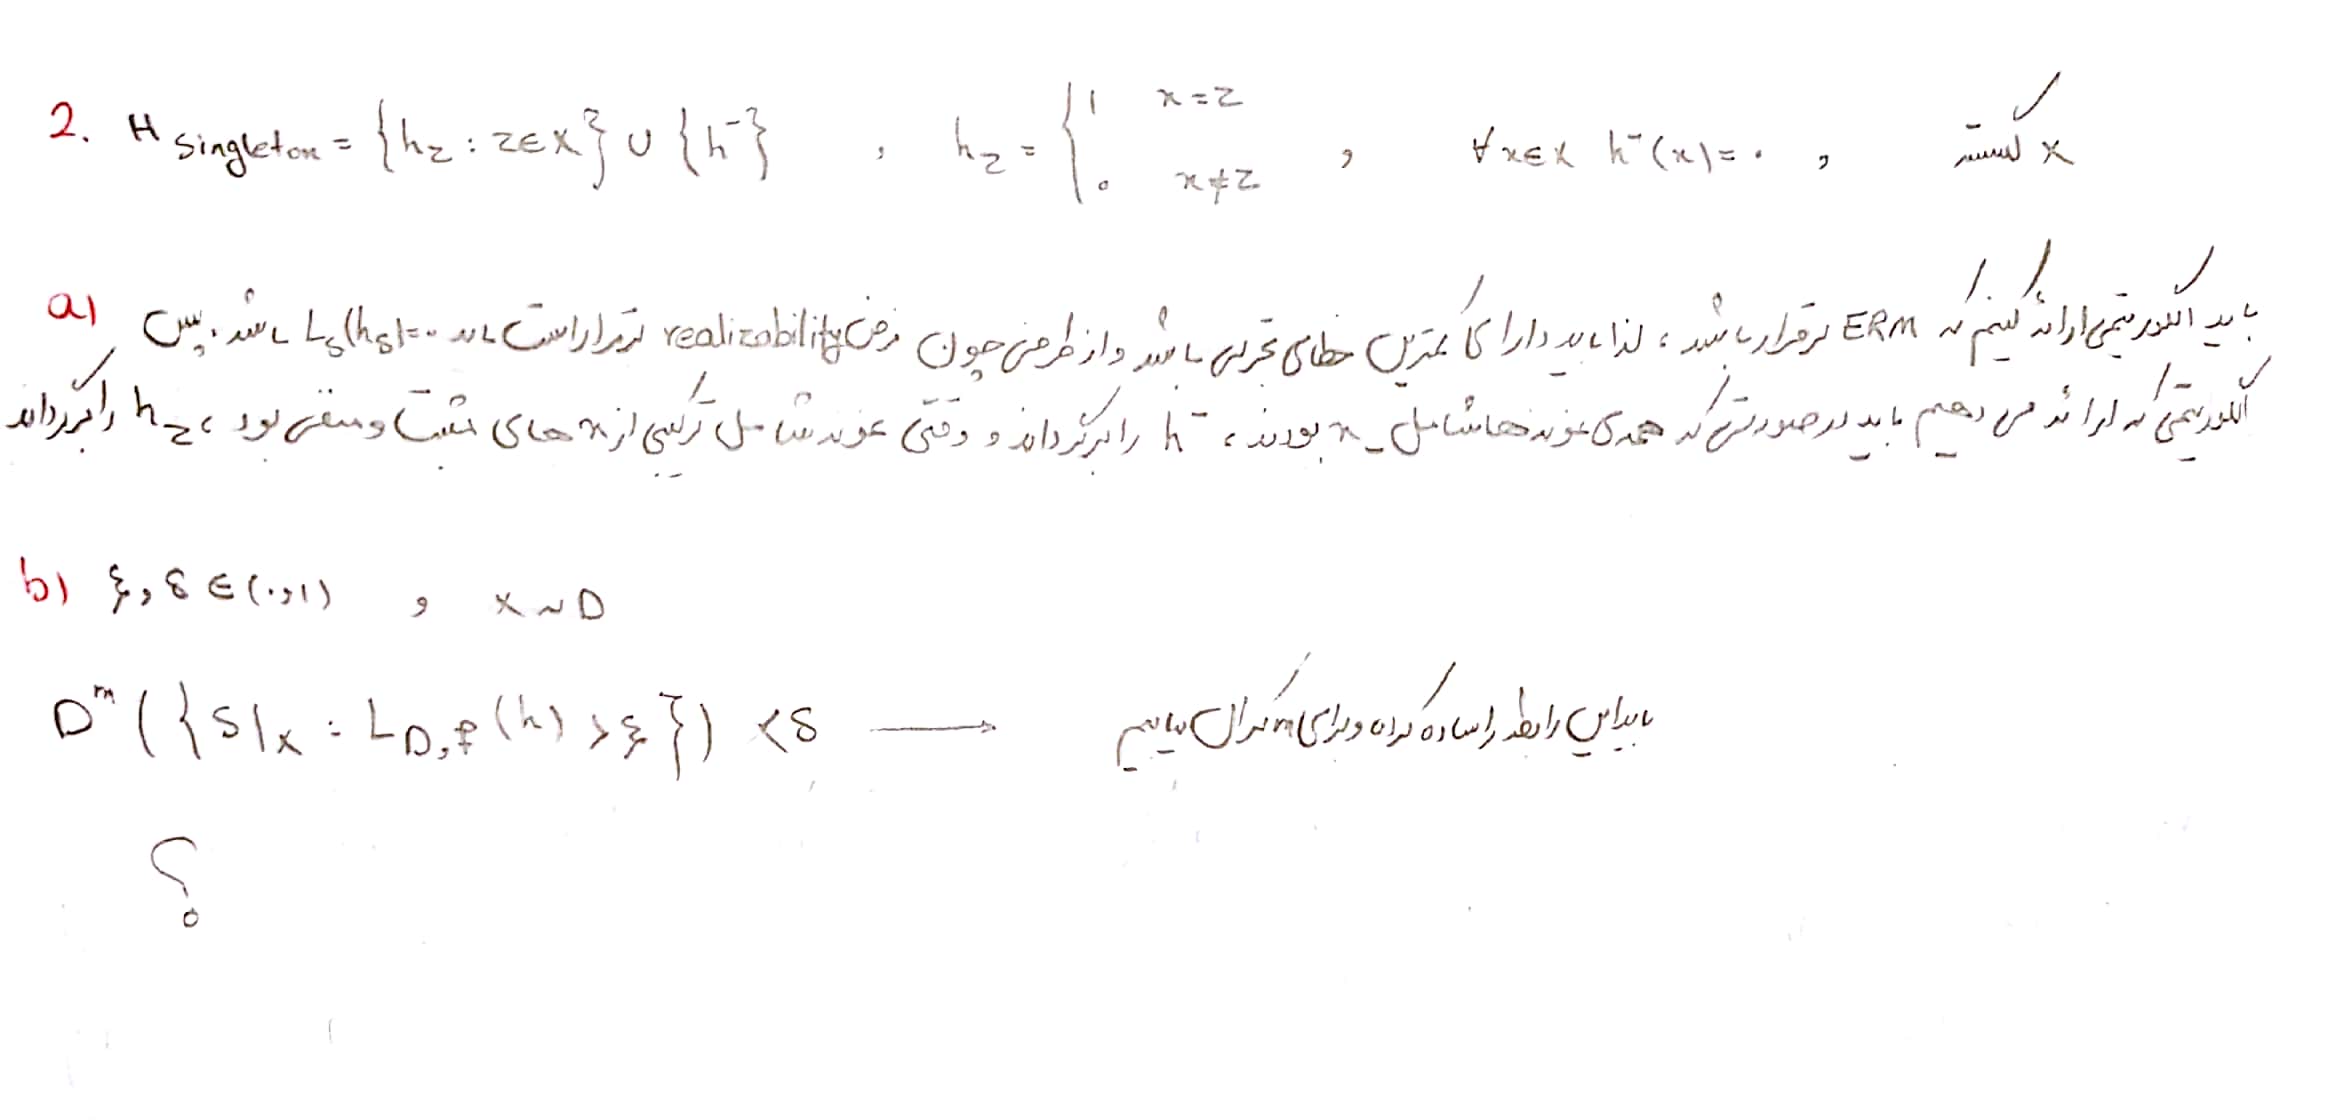 2. H singleton = {h_z : z∈X} ∪ {h⁻} , h_z = { 1 x=z , 0 x≠z , ∀x∈X h⁻(x)=۰ , X گسسته
a) باید الگوریتمی ارائه کنیم که ERM برقرار باشد، لذا باید دارای کمترین خطای تجربی باشد و از طرفی چون فرض realizability برقرار است باید L_S(h_S)=۰ باشد. پس
الگوریتمی که ارائه می دهیم باید در صورتی که همه ی نمونه ها شامل x_ بودند، h⁻ را برگرداند و وقتی نمونه شامل ترکیبی از x های مثبت و منفی بود، h_z را برگرداند
b) ξ, δ ∈ (۰,1) , X ~ D
D^m ({S|_x : L_{D,f}(h) > ξ}) < δ ⟶ باید این رابطه را ساده کرده و برای m کران بیابیم
؟